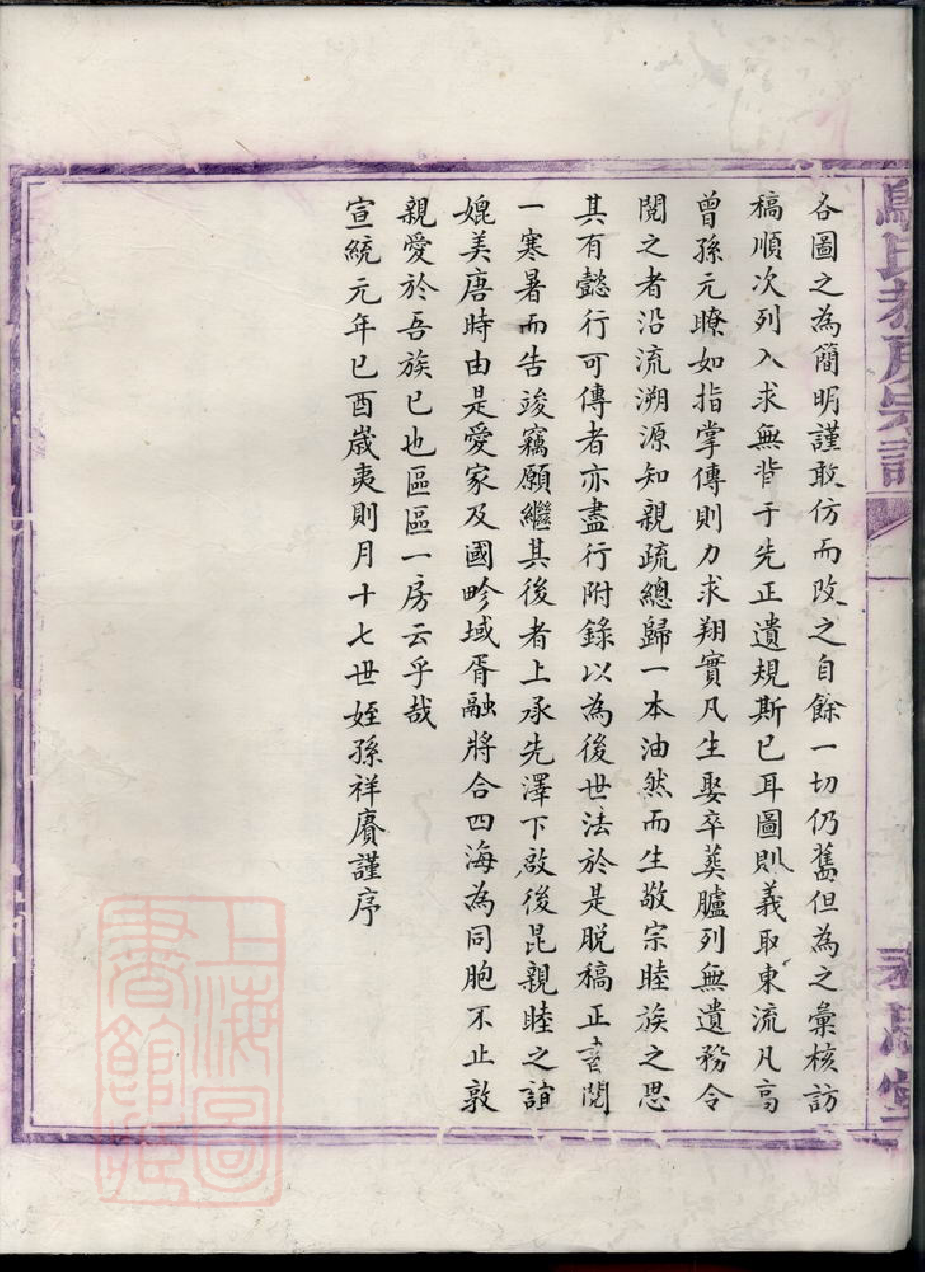 各圖之為簡明謹敢仿而改之自餘一切仍舊但為之彙核訪
稿順次列入求無背于先正遺規斯已耳圖則義取東流凡高
曾孫元瞭如指掌傳則力求翔實凡生娶卒葬臚列無遺務令
閱之者沿流溯源知親疏總歸一本油然而生敬宗睦族之思
其有懿行可傳者亦盡行附錄以為後世法於是脱稿正書閱
一寒暑而告竣竊願繼其後者上承先澤下啟後昆親睦之誼
媲美唐時由是愛家及國畛域胥融將合四海為同胞不止敦
親愛於吾族已也區區一房云乎哉
宣統元年已酉歲夷則月十七世姪孫祥賡謹序
上海圖
書館藏